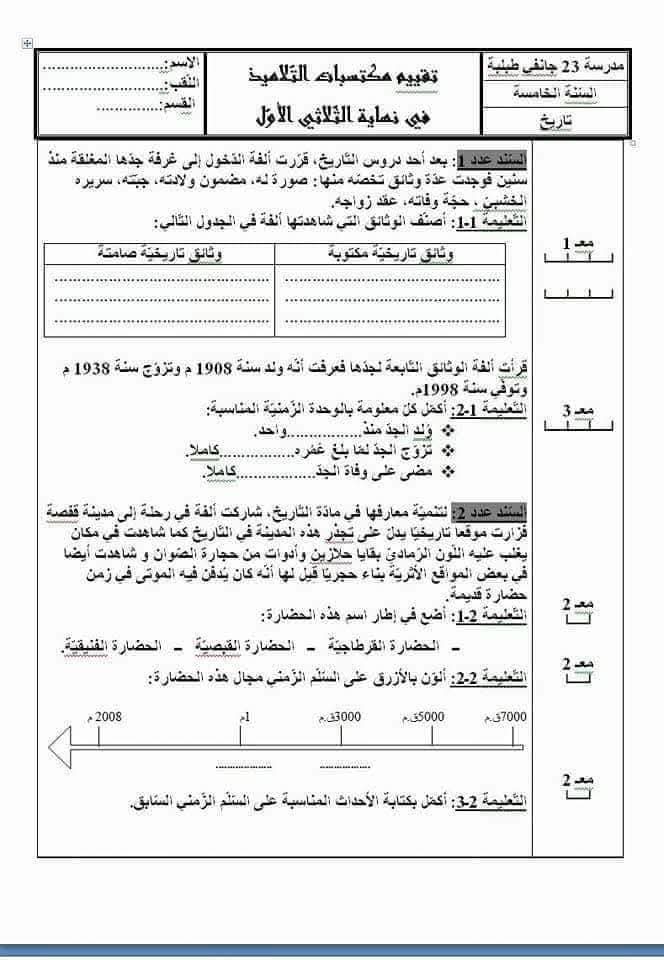 مدرسة 23 جانفي طبلبة
السّنة الخامسة
تاريخ
تقييم مكتسبات التّلاميذ
في نهاية الثّلاثي الأوّل
الاسم:............................
اللّقب:............................
القسم:..............
السّند عدد 1: بعد أحد دروس التّاريخ، قرّرت ألفة الدّخول إلى غرفة جدّها المغلقة منذ
سنين فوجدت عدّة وثائق تخصّه منها: صورة له، مضمون ولادته، جبّته، سريره
الخشبيّ ، حجّة وفاته، عقد زواجه.
التّعليمة 1-1: أصنّف الوثائق التي شاهدتها ألفة في الجدول التّالي:
معـ 1
وثائق تاريخيّة مكتوبة
وثائق تاريخيّة صامتة
قرأت ألفة الوثائق التّابعة لجدّها فعرفت أنّه ولد سنة 1908 م وتزوّج سنة 1938 م
وتوفّي سنة 1998م.
التّعليمة 1-2: أكمّل كلّ معلومة بالوحدة الزّمنيّة المناسبة:
معـ 3
❖ وُلد الجدّ منذ.................واحد.
❖ تزوّج الجدّ لمّا بلغ عمُره.................كاملا.
❖ مضى على وفاة الجدّ..................كاملا.
السّند عدد 2: لتنميّة معارفها في مادّة التّاريخ، شاركت ألفة في رحلة إلى مدينة قفصة
فزارت موقعا تاريخيّا يدلّ على تجذّر هذه المدينة في التّاريخ كما شاهدت في مكان
يغلب عليه اللّون الرّماديّ بقايا حلازين وأدوات من حجارة الصّوان و شاهدت أيضا
في بعض المواقع الأثريّة بناء حجريّا قيل لها أنّه كان يُدفن فيه الموتى في زمن
حضارة قديمة.
التّعليمة 2-1: أضع في إطار اسم هذه الحضارة:
معـ 2
ـ الحضارة القرطاجيّة ـ الحضارة القبصيّة ـ الحضارة الفنيقيّة.
التّعليمة 2-2: ألوّن بالأزرق على السّلّم الزّمني مجال هذه الحضارة:
معـ 2
7000ق.م 5000ق.م 3000ق.م 1م 2008 م
................ ................
التّعليمة 2-3: أكمّل بكتابة الأحداث المناسبة على السّلّم الزّمني السّابق.
معـ 2